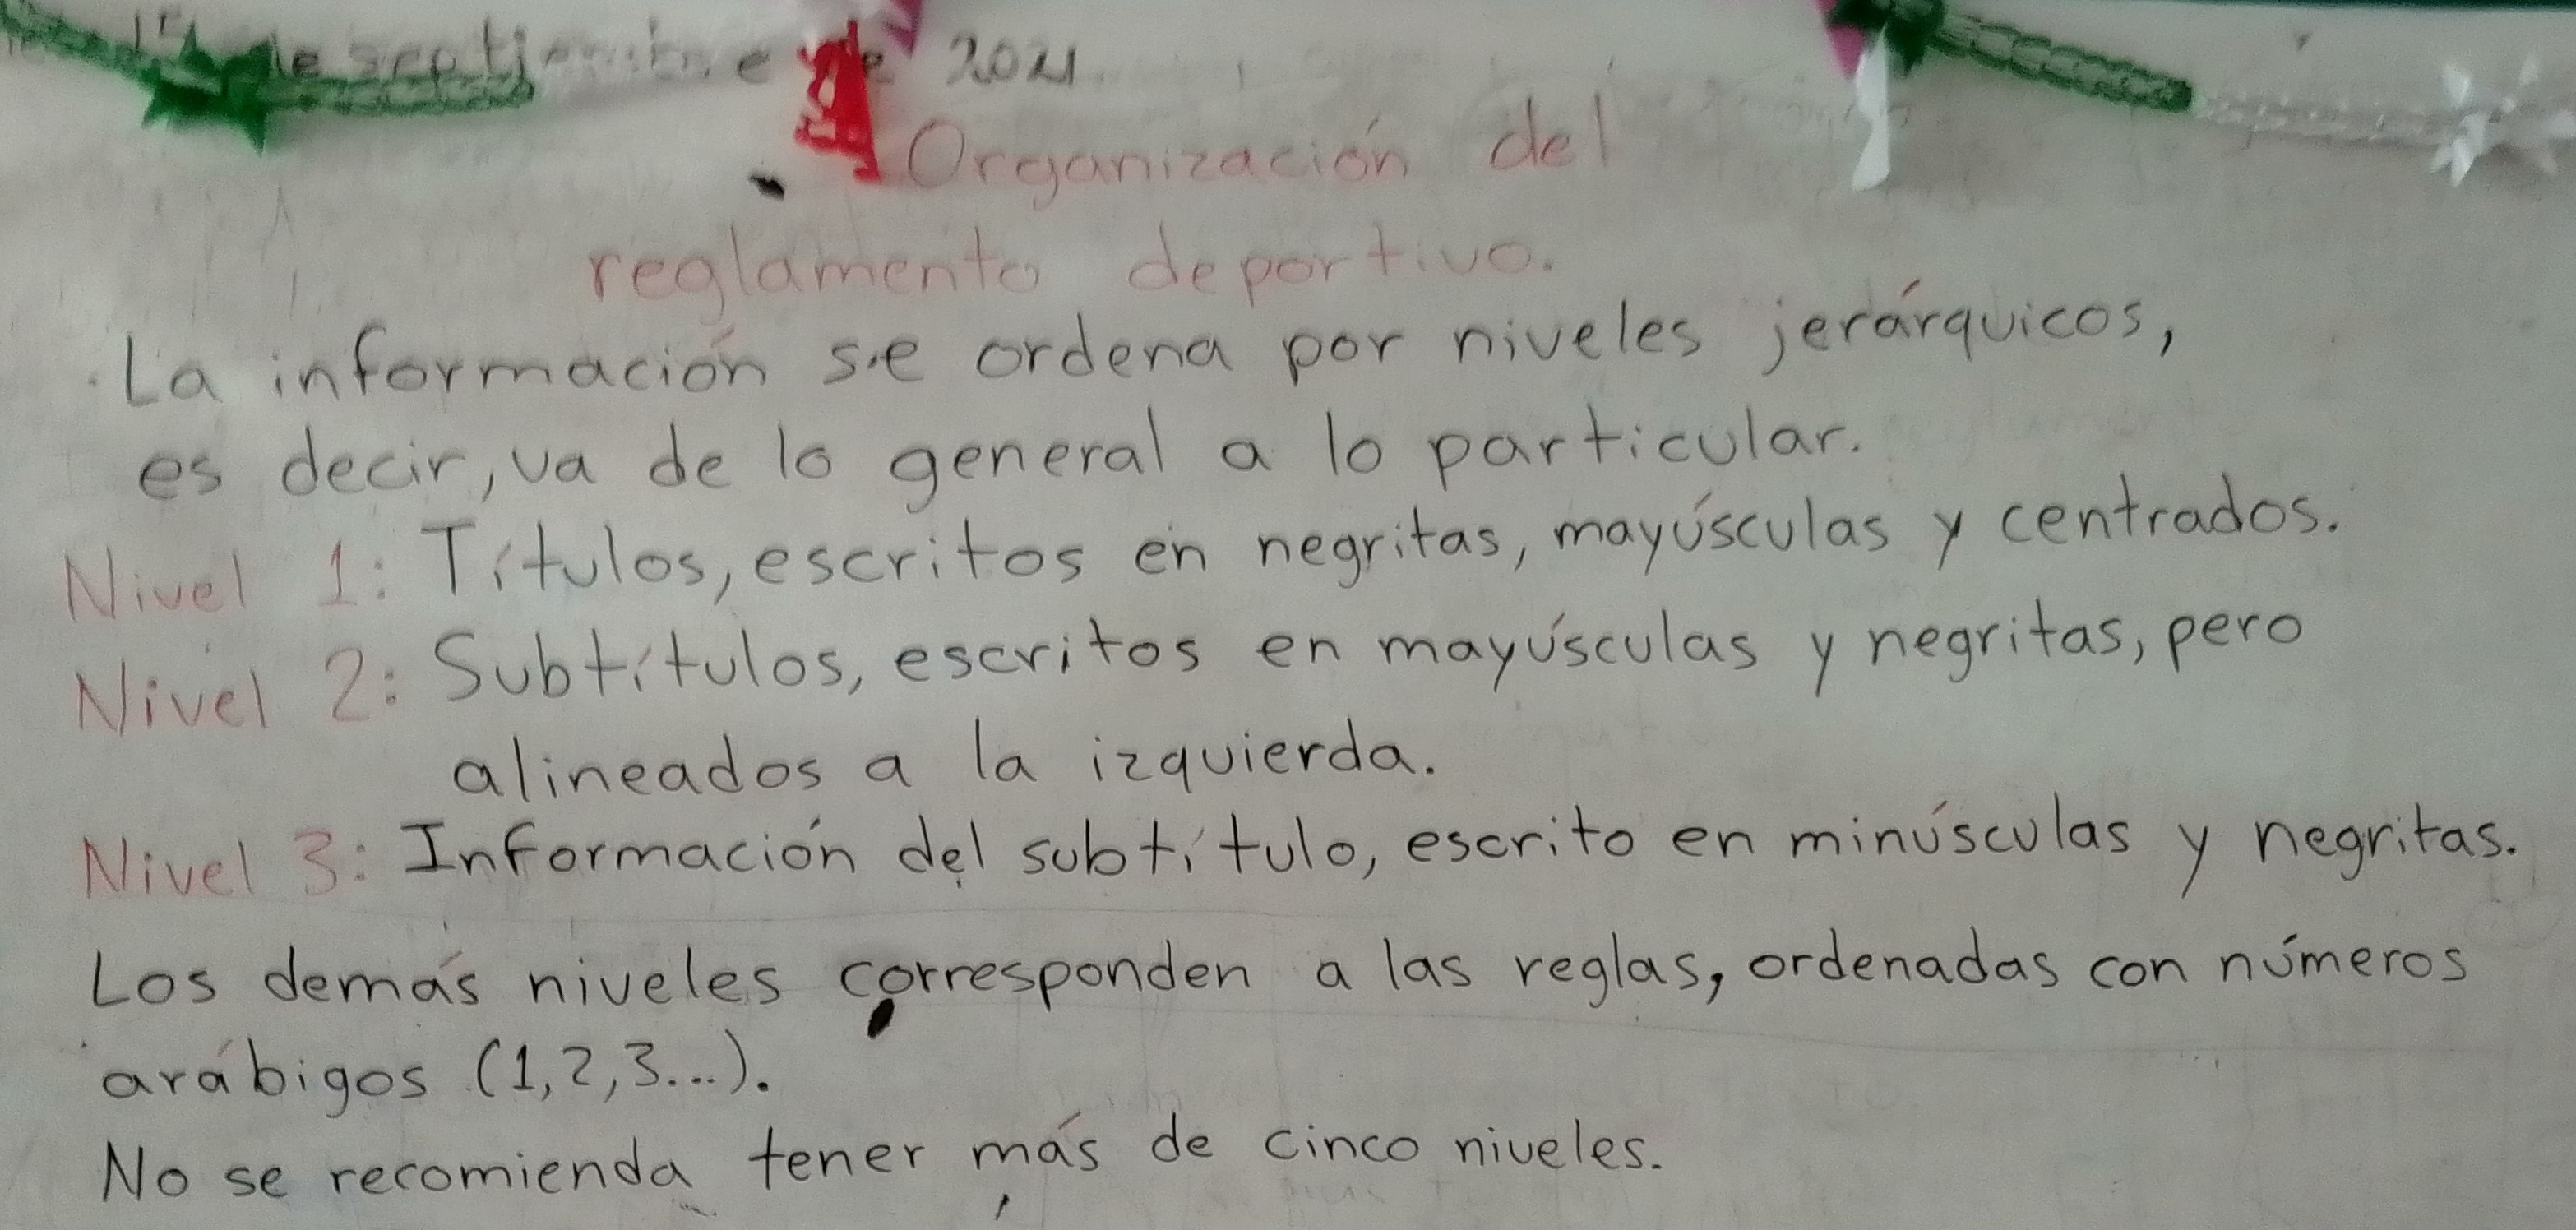 de septiembre de 2021
Organización del
reglamento deportivo.
La información se ordena por niveles jerárquicos,
es decir, va de lo general a lo particular.
Nivel 1: Títulos, escritos en negritas, mayúsculas y centrados.
Nivel 2: Subtítulos, escritos en mayúsculas y negritas, pero
alineados a la izquierda.
Nivel 3: Información del subtítulo, escrito en minúsculas y negritas.
Los demás niveles corresponden a las reglas, ordenadas con números
arábigos (1,2,3...).
No se recomienda tener más de cinco niveles.